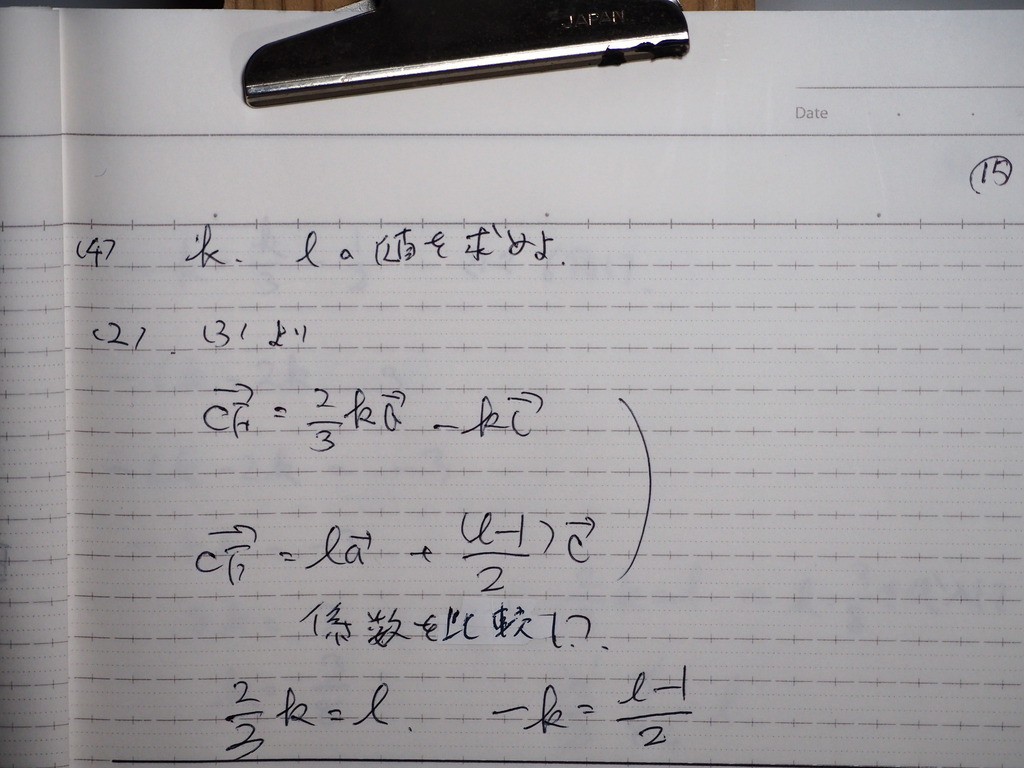 JAPAN
Date
⑮
(4) k. lの値を求めよ.
(2). (3)より
→CF = 2/3 k→a - k→c
→CF = l→a + (l-1)/2 →c
係数を比較して.
2/3 k = l. -k = l-1/2